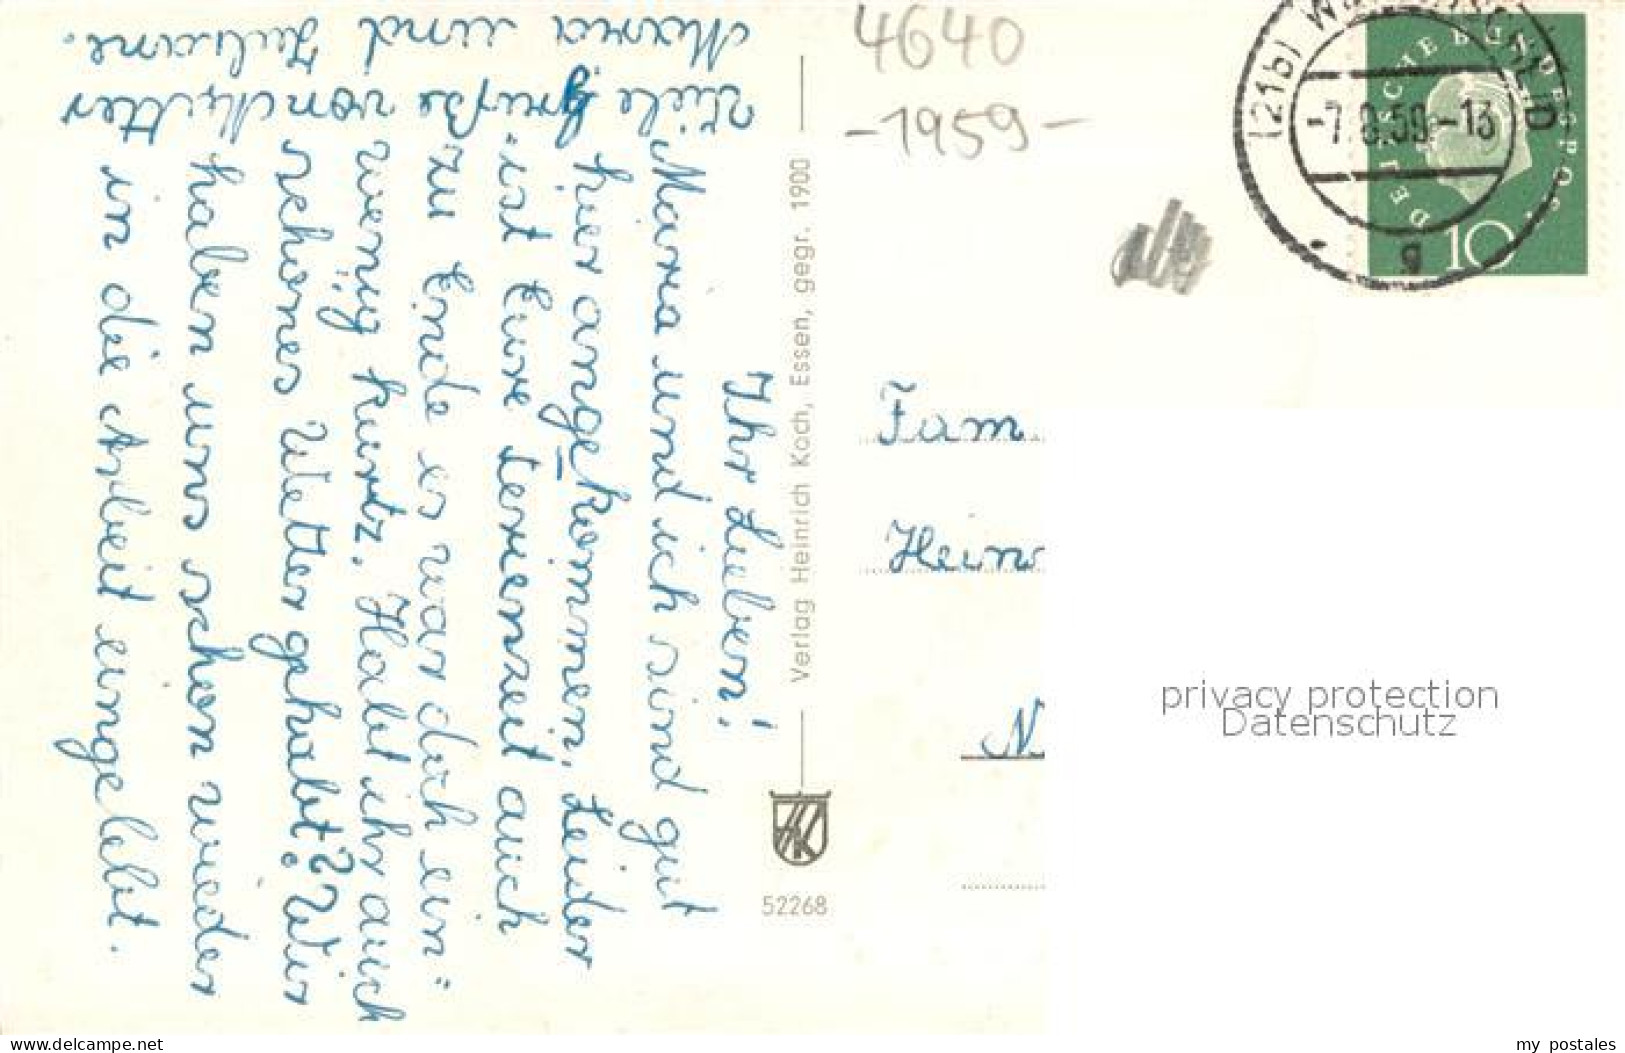 Ihr Lieben!
Maria und ich sind gut
hier angekommen, Leider
ist Eure Ferienzeit auch
zu Ende es war doch ein=
wenig kurtz. Habt ihr auch
schönes Wetter gehabt? Wir
haben uns schon wieder
in die Arbeit eingelebt.
Viele Grüße von Mutter
Maria und Juliane.
Verlag Heinrich Koch, Essen, gegr. 1900
HK
52268
4640
-1959-
(21b)
-7.8.59.-13
g
DEUTSCHE BUNDESPOST
10
Fam
Hein
N.
privacy protection
Datenschutz
delcampe.net
my_postales